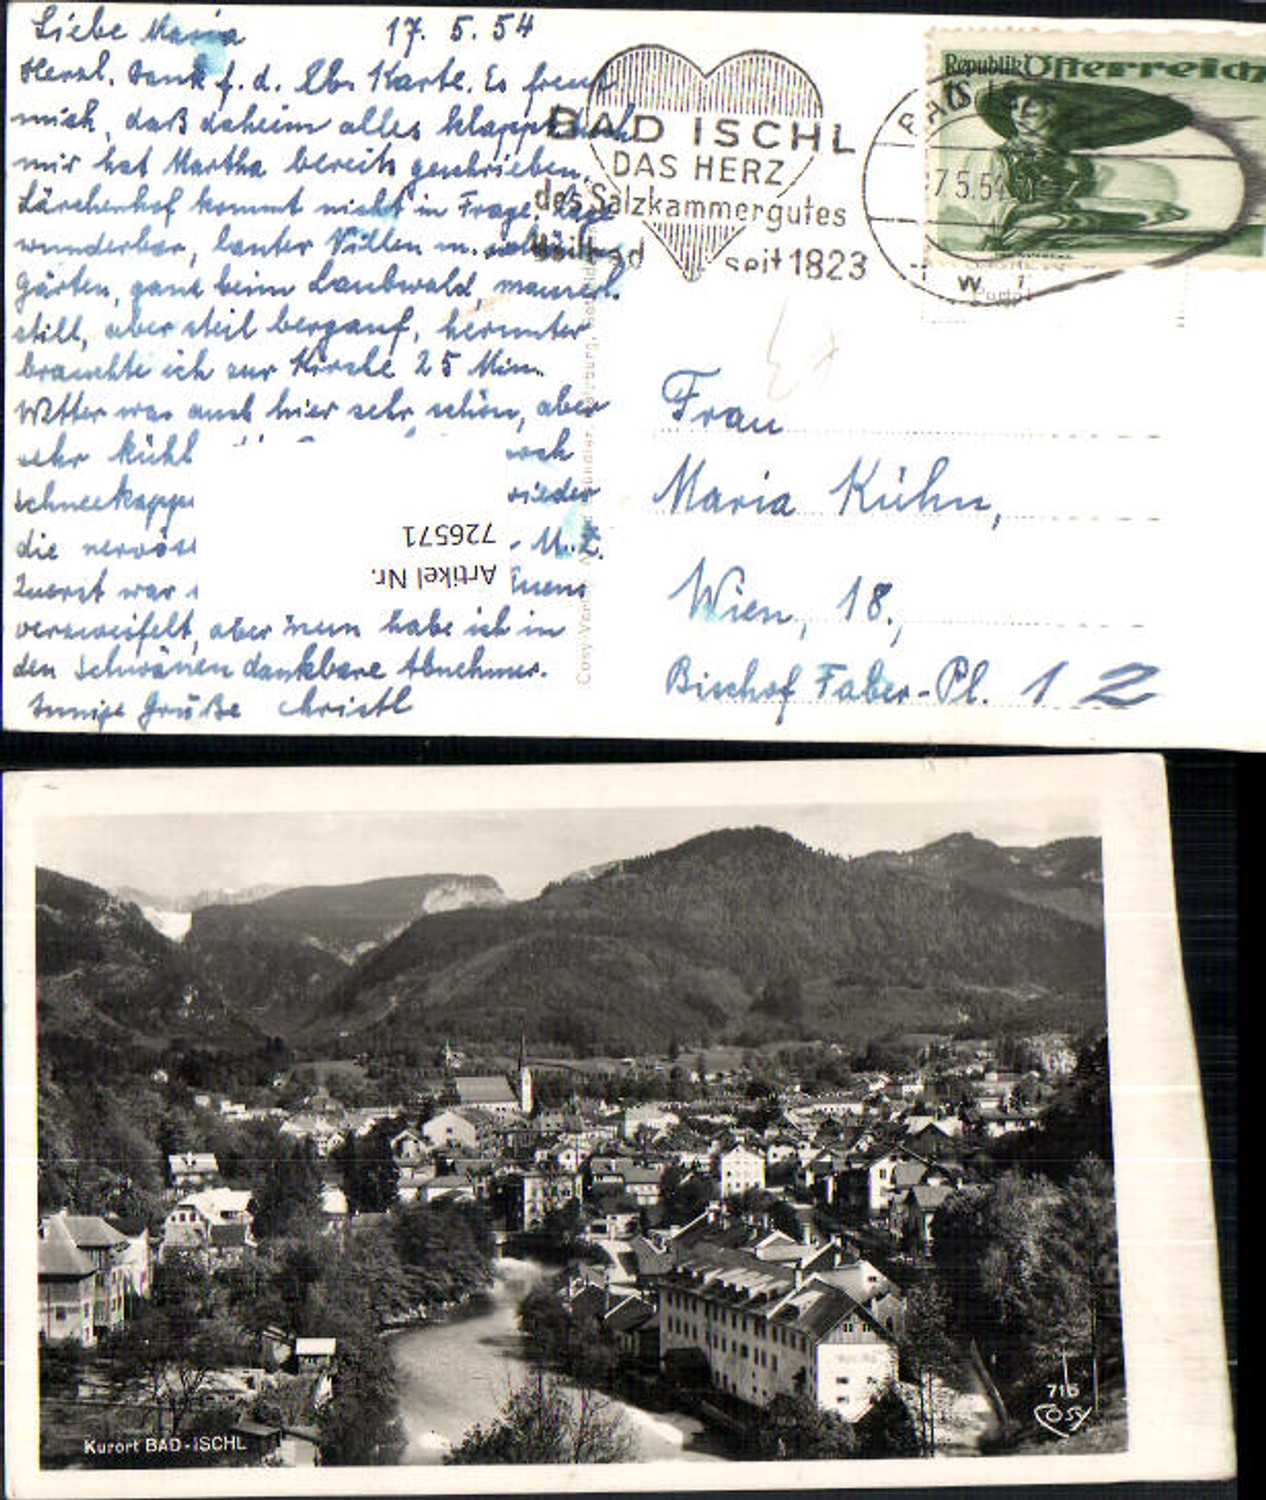 Liebe Maria 17. 5. 54
Herzl. Dank f. d. lb. Karte. Es freut
mich, daß daheim alles klappt. Auch
mir hat Martha bereits geschrieben.
Lärchenhof kommt nicht in Frage. Lage
wunderbar, lauter Villen m.
Gärten, ganz beim Laubwald,
still, aber steil bergauf, herunter
brauchte ich zur Kirche 25 Min.
Wetter war auch hier sehr schön, aber
sehr kühl
schneekappe wieder
die nervöse M. Z.
Zuerst war
verzweifelt, aber nun habe ich in
den Schwänen dankbare Abnehmer.
Innige Grüße Christl
BAD ISCHL
DAS HERZ
des Salzkammergutes
Heilbad seit 1823
Republik Österreich
BAD IS
7.5.54
Frau
Maria Kühn,
Wien, 18.,
Bischof Faber-Pl. 12
Artikel Nr.
726571
Cosy-Verlag
Salzburg
Kurort BAD-ISCHL
716
Cosy